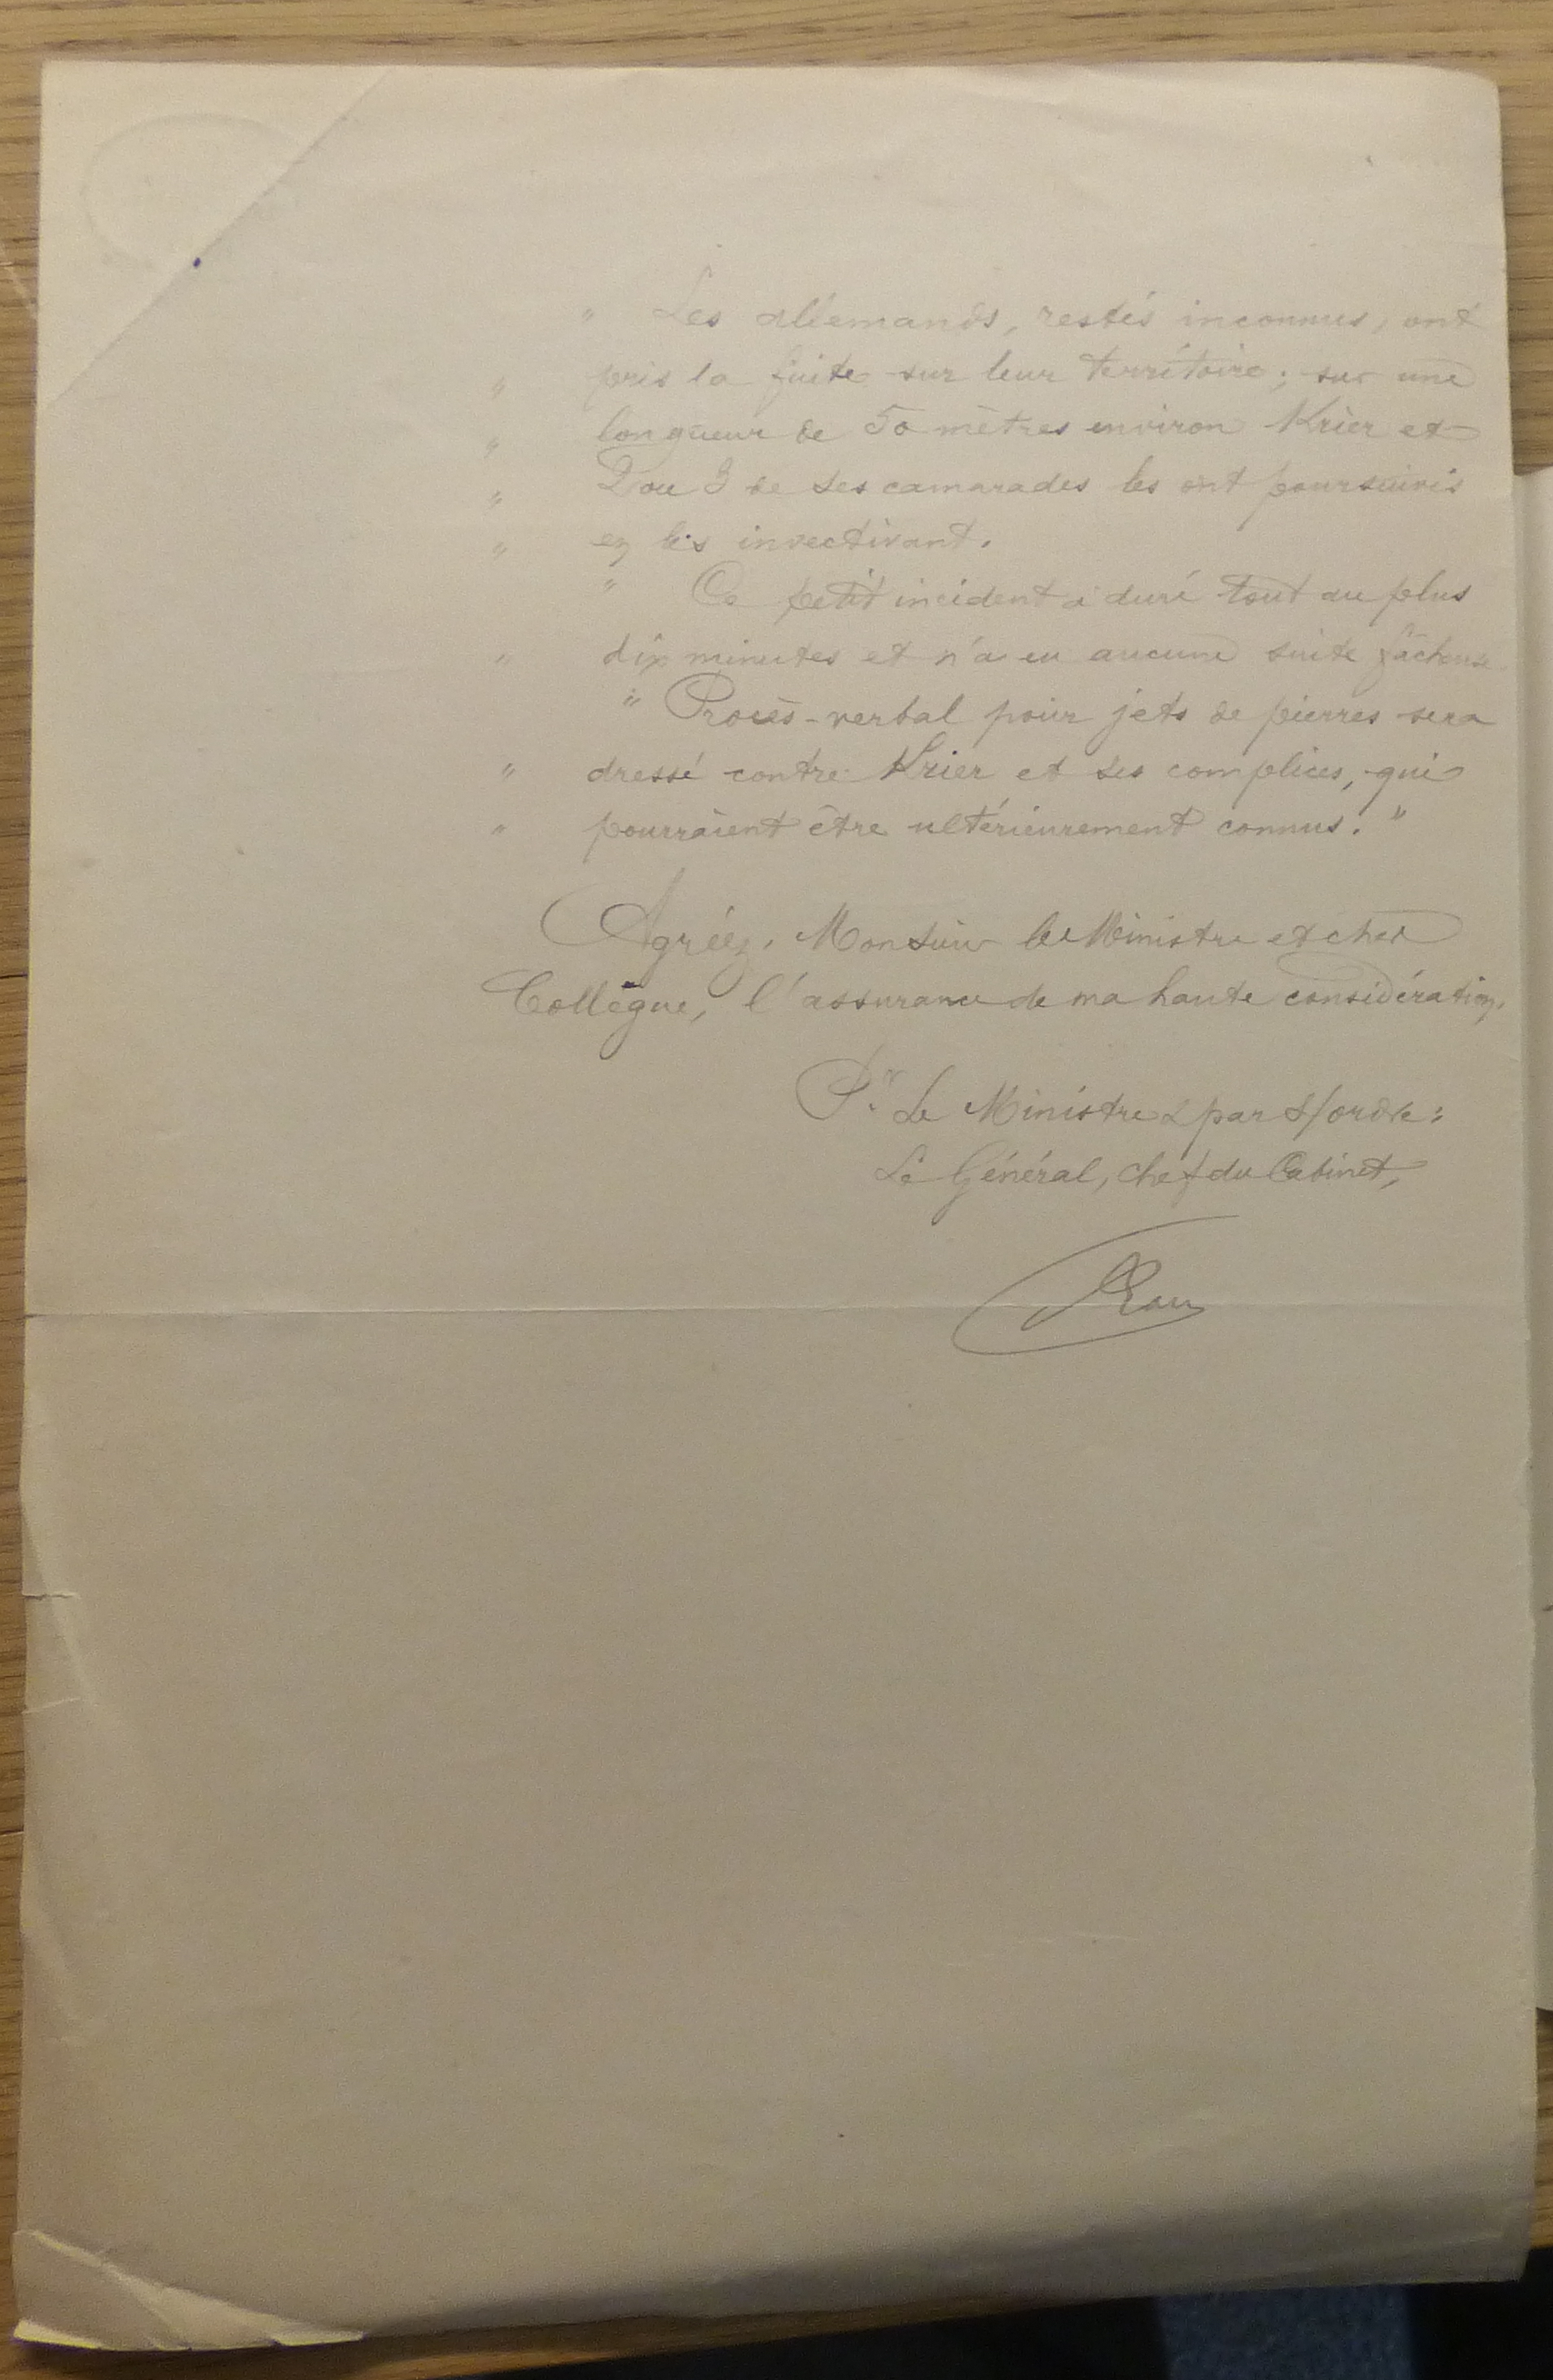 " Les allemands, restés inconnus, ont
" pris la fuite sur leur territoire ; sur une
" longueur de 50 mètres environ Krier et
" 2 ou 3 de ses camarades les ont poursuivis
" en les invectivant.
" Ce petit incident a duré tout au plus
" dix minutes et n'a eu aucune suite fâcheuse.
" Procès-verbal pour jets de pierres sera
" dressé contre Krier et ses complices, qui
" pourraient être ultérieurement connus. "
Agréez, Monsieur le Ministre et cher
Collègue, l'assurance de ma haute considération,
Pr. Le Ministre & par s/ordre :
Le Général, Chef du Cabinet,